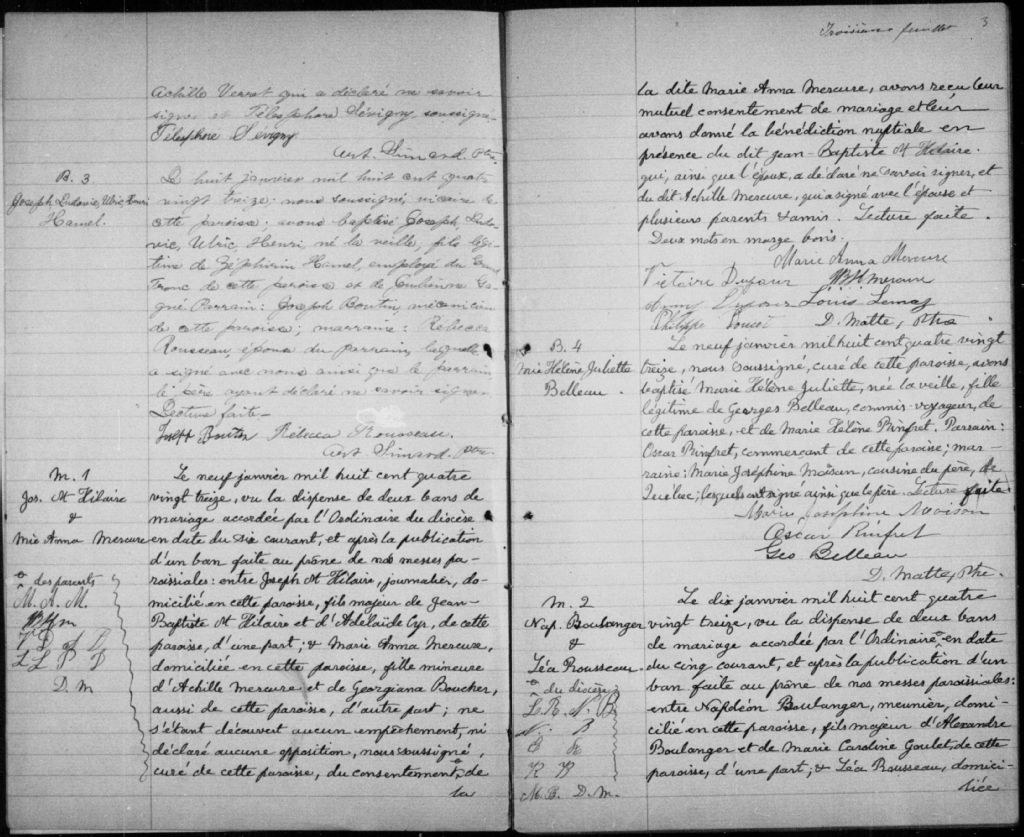 Achille Verret qui a déclaré ne savoir
signer et Télesphore Sévigny soussigné.
Télesphore Sévigny
Art. Simard, Ptre
B. 3
Joseph, Ludovic, Ulric, Henri
Hamel.
Le huit janvier mil huit cent quatre
vingt treize; nous soussigné, vicaire de
cette paroisse; avons baptisé Joseph, Ludo-
vic, Ulric Henri, né la veille, fils légi-
time de Zéphirin Hamel, employé du Grand
Tronc de cette paroisse et de Julienne Ga-
gné. Parrain: Joseph Boutin, mécanicien
de cette paroisse; marraine: Rébecca
Rousseau, épouse du parrain, laquelle
a signé avec nous ainsi que le parrain,
le père ayant déclaré ne savoir signer.
Lecture faite.
Joseph Boutin Rébecca Rousseau.
Art. Simard, Ptre
M. 1
Jos. St Hilaire
&
Mie Anna Mercure
Le neuf janvier mil huit cent quatre
vingt treize, vu la dispense de deux bans de
mariage accordée par l'Ordinaire du diocèse
en date du six courant, et après la publication
d'un ban faite au prône de nos messes pa-
roissiales: entre Joseph St Hilaire, journalier, do-
micilié en cette paroisse, fils majeur de Jean-
Baptiste St Hilaire et d'Adélaïde Cyr, de cette
paroisse, d'une part; & Marie Anna Mercure,
domiciliée en cette paroisse, fille mineure
d'Achille Mercure et de Georgiana Boucher,
aussi de cette paroisse, d'autre part; ne
s'étant découvert aucun empêchement, ni
déclaré aucune opposition, nous soussigné,
curé de cette paroisse, du consentement, de
la
des parents
M. A. M.
V. D. D
L L P D
D. M
Troisième feuillet
3
la dite Marie Anna Mercure, avons reçu leur
mutuel consentement de mariage et leur
avons donné la bénédiction nuptiale en
présence du dit Jean-Baptiste St Hilaire.
qui, ainsi que l'époux, a déclaré ne savoir signer, et
du dit Achille Mercure, qui a signé avec l'épouse et
plusieurs parents & amis. Lecture faite.
Deux mots en marge bons.
Marie Anna Mercure
Victoire Dupour Mercure
Louis Lemay
Philippe D. Matte, Ptre
B. 4
Mie Hélène Juliette
Belleau.
Le neuf janvier mil huit cent quatre vingt
treize, nous soussigné, curé de cette paroisse, avons
baptisé Marie Hélène Juliette, né la veille, fille
légitime de Georges Belleau, commis-voyageur, de
cette paroisse, et de Marie Hélène Rinfret. Parrain:
Oscar Rinfret, commerçant de cette paroisse; mar-
raine: Marie Joséphine Moisan, cousine du père, de
Québec; lesquels ont signé ainsi que le père. Lecture faite
Marie Joséphine Moison
Oscar Rinfret
Geo Belleau
D. Matte, Ptre.
M. 2
Nap. Boulanger
&
Léa Rousseau
du diocèse
L. R. N. B
R B
M. B. D. M.
Le dix janvier mil huit cent quatre
vingt treize, vu la dispense de deux bans
de mariage accordée par l'Ordinaire, en date
du cinq courant, et après la publication d'un
ban faite au prône de nos messes paroissiales:
entre Napoléon Boulanger, meunier, domi-
cilié en cette paroisse, fils majeur d'Alexandre
Boulanger et de Marie Caroline Goulet, de cette
paroisse, d'une part; & Léa Rousseau, domici-
liée